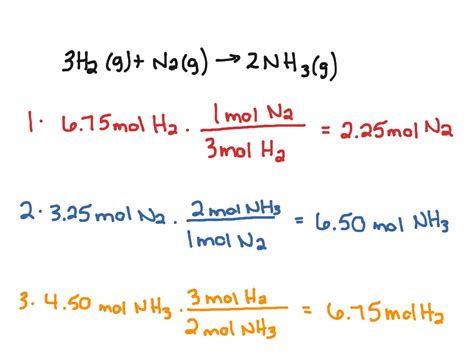 3H₂(g) + N₂(g) → 2NH₃(g)
1. 6.75 mol H₂ · 1 mol N₂ / 3 mol H₂ = 2.25 mol N₂
2. 3.25 mol N₂ · 2 mol NH₃ / 1 mol N₂ = 6.50 mol NH₃
3. 4.50 mol NH₃ · 3 mol H₂ / 2 mol NH₃ = 6.75 mol H₂